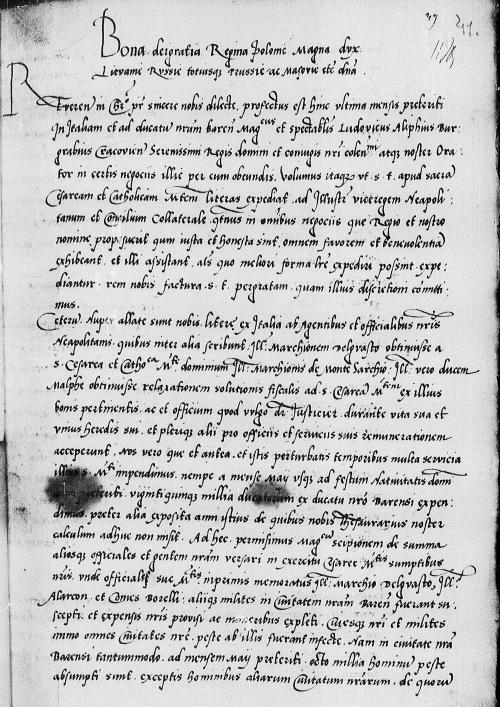 Bona dei gratia Regina Polonie Magna dux
Lituanie Russie totiusque Prussie ac Masovie etc dna
Reveren in pr sincere nobis dilecte, profectus est hinc ultima mensis preteriti
in Italiam et ad ducatu nrum baren Magcus et spectablis Ludovicus Aliphius Bur=
grabius Cracovien Serenissimi Regis domini et coniugis nri colenm atque noster Ora=
tor in certis negociis illic per eum obeundis. Volumus itaque ut s. t. apud sacra
Cesaream et Catholicam Mtem literas expediat, ad Illustre viceregem Neapoli=
tanum et Consilium Collaterale, in omnibus negociis que Regio et nostro
nomine proposuerit qum iusta et honesta sint, omnem favorem et benevolentia
exhibeant, et illi assistant, ac quo meliori forma lre expediri possint, expe=
diantur. rem nobis factura s. t. pergratam, quam illius discretioni comitti
mus.
Ceteru Nuper allate sunt nobis litere ex Italia ab Agentibus et officialibus nris
Neapolitanis, quibus inter alia scribunt, Ill: Marchionem Delgvasto obtinuisse a
s. Cesarea et Cathoca Mte dominium Ill: Marchionis de Monte Sarchio, Ill: vero ducem
Malphe obtinuisse relaxationem solutionis fiscalis ad s. Cesarea Mtem ex illius
bonis pertinentis, ac et officium quod vulgo dr Justicier, durante vita sua et
unius heredis sui, et plerique alii pro officiis et serviciis suis remunerationem
acceperunt. Nos vero que et antea, et istis perturbatis temporibus multa servicia
s. Mti impendimus, nempe a mense May usque ad festum Nativitatis domi
preteriti, viginti quinque millia ducatorum ex ducatu nro Barensi expen=
dimus, preter alia exposita anni istius de quibus nobis Thesaurarius noster
calculum adhuc non misit. Ad hec, permisimus Magcu Scipionem de summa
aliosque officiales et gentem nram versari in exercitu Cesaree Mtis sumptibus
nris, unde officiales sue Mtis inprimis memoratus Ill: Marchio Delgvasto, Ill:
Alarcon, et Comes Borelli, aliique milites in Civitatem nram Baren fuerunt su=
scepti, et expensis nris provisi ac muneribus expleti, Cives que nri et milites
immo omnes Civitates nre, peste ab illis fuerant infecte. Nam in civitate nra
Barensi tantummodo, ad mensem May preteriti, octo millia hominu peste
absumpti sunt, exceptis hominibus aliarum Civitatum nrarum, de quoru